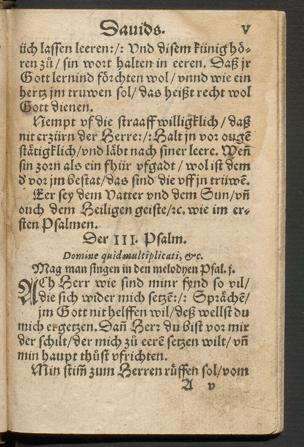 Dauids. v
üch lassen leeren:/: Vnd disem künig hö-
ren zů/ sin wort halten in eeren. Daß jr
Gott lernind förchten wol/ vnnd wie ein
hertz jm truwen sol/ das heißt recht wol
Gott dienen.
Nempt vf die straaff willigklich/ daß
nit erzürn der Herre:/: Halt jn vor ougē
stätigklich/ vnd läbt nach siner leere. Weñ
sin zorn als ein fhür vfgadt/ wol ist dem
d' vor jm bestat/ das sind die vff jn trüwē.
Eer sey dem Vatter vnd dem Sun/ vñ
ouch dem Heiligen geiste/ ⁊c. wie im er-
sten Psalmen.
Der III. Psalm.
Domine quid multiplicati, &c.
Mag man singen in den melodyen Psal. j.
Ach Herr wie sind minr fynd so vil/
die sich wider mich setzē:/: Sprächē/
jm Gott nit helffen wil/ deß wellst du
mich ergetzen. Dañ Herr du bist vor mir
der schilt/ der mich zů eerē setzen wilt/ vñ
min haupt thůst vfrichten.
Min stim̃ zum Herren rüffen sol/ vom
A v